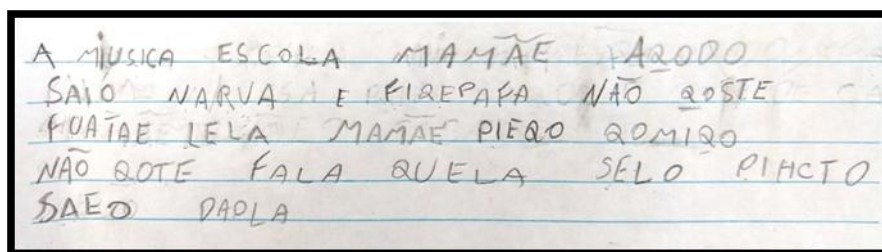 A MIUSICA ESCOLA MAMÃE AQODO
SAIO NARVA E FIQEPAFA NÃO QOSTE
FUATAE LELA MAMÃE PIEQO QOMIQO
NÃO QOTE FALA QUELA SELO PIHCTO
SAEO DAOLA